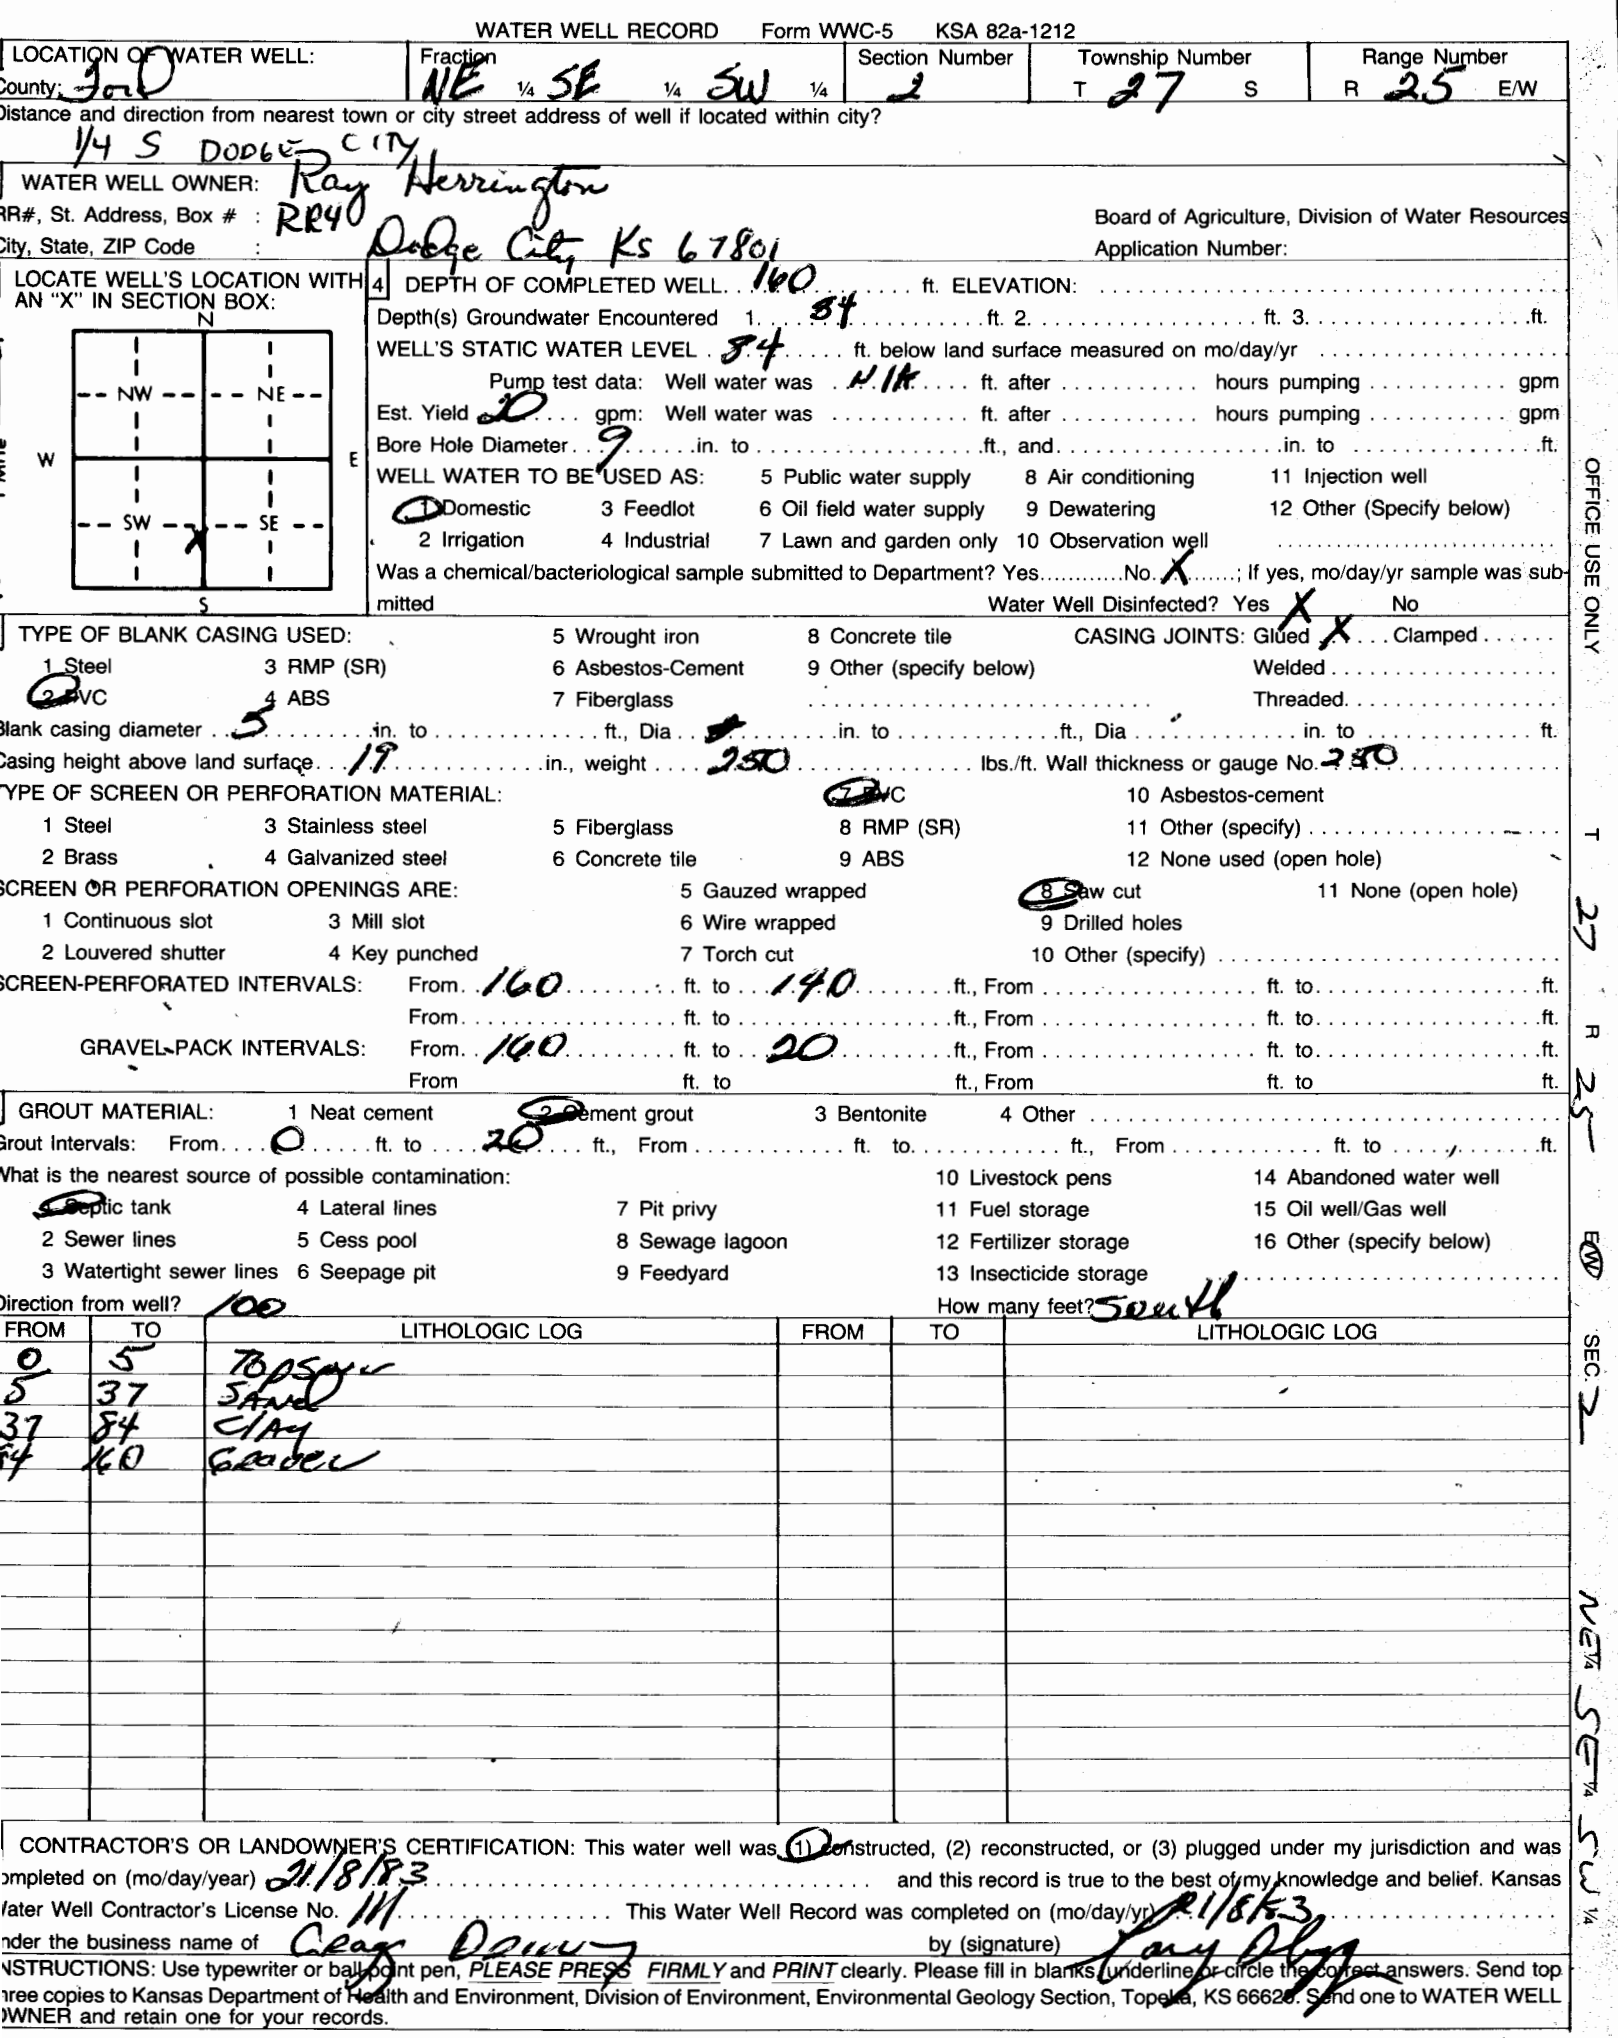 WATER WELL RECORD Form WWC-5 KSA 82a-1212
LOCATION OF WATER WELL: Fraction Section Number Township Number Range Number
County: Ford NE ¼ SE ¼ SW ¼ 2 T 27 S R 25 E/W
Distance and direction from nearest town or city street address of well if located within city?
1/4 S DODGE CITY
WATER WELL OWNER: Ray Herrington
RR#, St. Address, Box # : RR40 Board of Agriculture, Division of Water Resources
City, State, ZIP Code : Dodge City Ks 67801 Application Number:
LOCATE WELL'S LOCATION WITH AN "X" IN SECTION BOX:
N
NW NE
W E
SW SE
X
S
4 DEPTH OF COMPLETED WELL 160 ft. ELEVATION:
Depth(s) Groundwater Encountered 1. 84 ft. 2. ft. 3. ft.
WELL'S STATIC WATER LEVEL 84 ft. below land surface measured on mo/day/yr
Pump test data: Well water was N/A ft. after hours pumping gpm
Est. Yield 20 gpm: Well water was ft. after hours pumping gpm
Bore Hole Diameter 9 in. to ft., and in. to ft.
WELL WATER TO BE USED AS: 5 Public water supply 8 Air conditioning 11 Injection well
1 Domestic 3 Feedlot 6 Oil field water supply 9 Dewatering 12 Other (Specify below)
2 Irrigation 4 Industrial 7 Lawn and garden only 10 Observation well
Was a chemical/bacteriological sample submitted to Department? Yes No X ; If yes, mo/day/yr sample was sub-
mitted Water Well Disinfected? Yes X No
TYPE OF BLANK CASING USED: 5 Wrought iron 8 Concrete tile CASING JOINTS: Glued X Clamped
1 Steel 3 RMP (SR) 6 Asbestos-Cement 9 Other (specify below) Welded
2 PVC 4 ABS 7 Fiberglass Threaded
Blank casing diameter 5 in. to ft., Dia in. to ft., Dia in. to ft.
Casing height above land surface 19 in., weight 250 lbs./ft. Wall thickness or gauge No. 250
TYPE OF SCREEN OR PERFORATION MATERIAL: 7 PVC 10 Asbestos-cement
1 Steel 3 Stainless steel 5 Fiberglass 8 RMP (SR) 11 Other (specify)
2 Brass 4 Galvanized steel 6 Concrete tile 9 ABS 12 None used (open hole)
SCREEN OR PERFORATION OPENINGS ARE: 5 Gauzed wrapped 8 Saw cut 11 None (open hole)
1 Continuous slot 3 Mill slot 6 Wire wrapped 9 Drilled holes
2 Louvered shutter 4 Key punched 7 Torch cut 10 Other (specify)
SCREEN-PERFORATED INTERVALS: From 160 ft. to 140 ft., From ft. to ft.
From ft. to ft., From ft. to ft.
GRAVEL PACK INTERVALS: From 160 ft. to 20 ft., From ft. to ft.
From ft. to ft., From ft. to ft.
GROUT MATERIAL: 1 Neat cement 2 Cement grout 3 Bentonite 4 Other
Grout Intervals: From 0 ft. to 20 ft., From ft. to ft., From ft. to ft.
What is the nearest source of possible contamination: 10 Livestock pens 14 Abandoned water well
1 Septic tank 4 Lateral lines 7 Pit privy 11 Fuel storage 15 Oil well/Gas well
2 Sewer lines 5 Cess pool 8 Sewage lagoon 12 Fertilizer storage 16 Other (specify below)
3 Watertight sewer lines 6 Seepage pit 9 Feedyard 13 Insecticide storage
Direction from well? 100 How many feet? South
FROM TO LITHOLOGIC LOG FROM TO LITHOLOGIC LOG
0 5
5 37 SAND
37 84 Clay
84 160 Gravel
CONTRACTOR'S OR LANDOWNER'S CERTIFICATION: This water well was (1) constructed, (2) reconstructed, or (3) plugged under my jurisdiction and was
completed on (mo/day/year) 21/8/83 and this record is true to the best of my knowledge and belief. Kansas
Water Well Contractor's License No. 111 This Water Well Record was completed on (mo/day/yr) 21/8/83
under the business name of by (signature)
INSTRUCTIONS: Use typewriter or ball point pen, PLEASE PRESS FIRMLY and PRINT clearly. Please fill in blanks, underline or circle the correct answers. Send top
three copies to Kansas Department of Health and Environment, Division of Environment, Environmental Geology Section, Topeka, KS 66620. Send one to WATER WELL
OWNER and retain one for your records.
OFFICE USE ONLY T 27 R 25 E/W SEC. 2 NE ¼ SE ¼ SW ¼